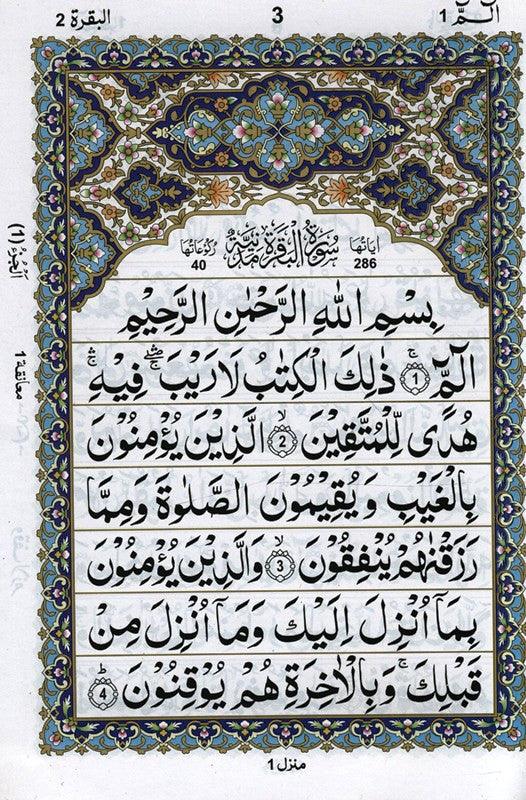 الٓمّٓ 1
3
البقرة 2
اٰيَاتُهَا 286
سُوْرَةُ الْبَقَرَةِ مَدَنِيَّةٌ
رُكُوْعَاتُهَا 40
بِسْمِ اللّٰهِ الرَّحْمٰنِ الرَّحِيْمِ
الٓمّٓ ۚ ﴿1﴾ ذٰلِكَ الْكِتٰبُ لَا رَيْبَ ۛۖ فِيْهِ ۛۚ
هُدًى لِّلْمُتَّقِيْنَ ۙ ﴿2﴾ الَّذِيْنَ يُؤْمِنُوْنَ
بِالْغَيْبِ وَيُقِيْمُوْنَ الصَّلٰوةَ وَمِمَّا
رَزَقْنٰهُمْ يُنْفِقُوْنَ ۙ ﴿3﴾ وَالَّذِيْنَ يُؤْمِنُوْنَ
بِمَآ اُنْزِلَ اِلَيْكَ وَمَآ اُنْزِلَ مِنْ
قَبْلِكَ ۚ وَبِالْاٰخِرَةِ هُمْ يُوْقِنُوْنَ ؕ ﴿4﴾
اَلْجُزْءُ (1)
معانقة 1
منزل 1